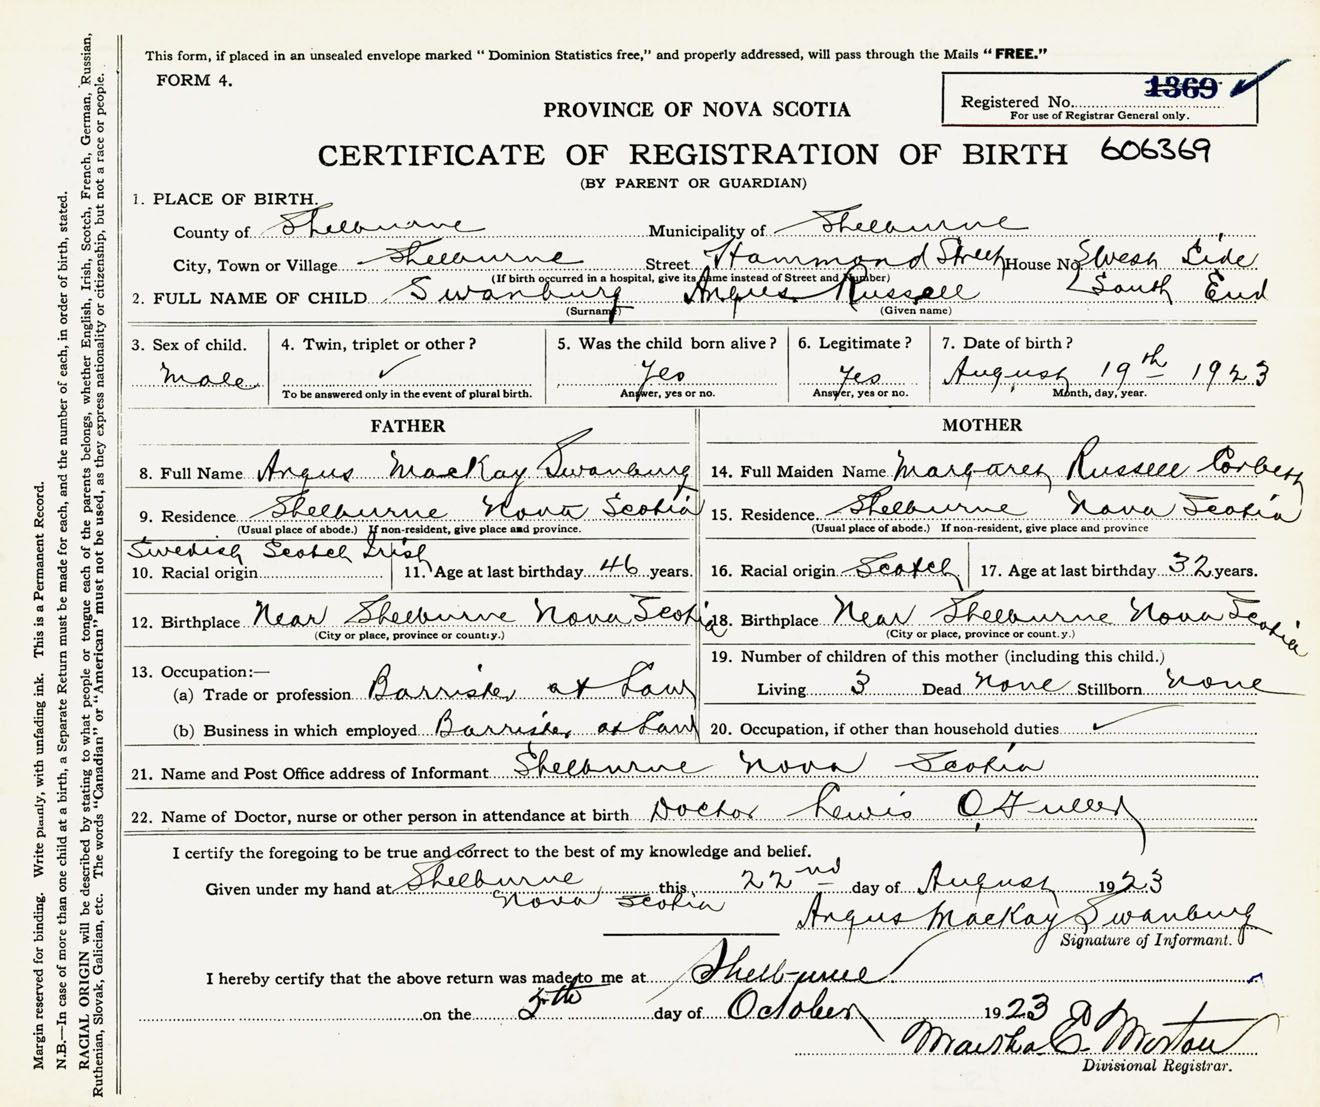 This form, if placed in an unsealed envelope marked " Dominion Statistics free," and properly addressed, will pass through the Mails " FREE."
FORM 4.
1369
Registered No.
For use of Registrar General only.
PROVINCE OF NOVA SCOTIA
CERTIFICATE OF REGISTRATION OF BIRTH 606369
(BY PARENT OR GUARDIAN)
1. PLACE OF BIRTH.
County of Shelburne Municipality of Shelburne
City, Town or Village Shelburne Street Hammond Street House No. West Side
(If birth occurred in a hospital, give its name instead of Street and Number) South End
2. FULL NAME OF CHILD Swanburg Angus Russell
(Surname) (Given name)
3. Sex of child. 4. Twin, triplet or other ? 5. Was the child born alive ? 6. Legitimate ? 7. Date of birth ?
Male ✓ Yes Yes August 19th 1923
To be answered only in the event of plural birth. Answer, yes or no. Answer, yes or no. Month, day, year.
FATHER
8. Full Name Angus MacKay Swanburg
9. Residence Shelburne Nova Scotia
(Usual place of abode.) If non-resident, give place and province.
Swedish Scotch Irish
10. Racial origin 11. Age at last birthday 46 years.
12. Birthplace Near Shelburne Nova Scotia
(City or place, province or county.)
13. Occupation:—
(a) Trade or profession Barrister at Law
(b) Business in which employed Barrister at Law
MOTHER
14. Full Maiden Name Margaret Russell Corbett
15. Residence Shelburne Nova Scotia
(Usual place of abode.) If non-resident, give place and province
16. Racial origin Scotch 17. Age at last birthday 32 years.
18. Birthplace Near Shelburne Nova Scotia
(City or place, province or county.)
19. Number of children of this mother (including this child.)
Living 3 Dead None Stillborn None
20. Occupation, if other than household duties ✓
21. Name and Post Office address of Informant Shelburne Nova Scotia
22. Name of Doctor, nurse or other person in attendance at birth Doctor Lewis O. Fuller
I certify the foregoing to be true and correct to the best of my knowledge and belief.
Given under my hand at Shelburne, this 22nd day of August 1923
Nova Scotia
Angus MacKay Swanburg
Signature of Informant.
I hereby certify that the above return was made to me at Shelburne
on the 5th day of October 1923
Martha E. Morton
Divisional Registrar.
Margin reserved for binding. Write plainly, with unfading ink. This is a Permanent Record.
N.B.—In case of more than one child at a birth, a Separate Return must be made for each, and the number of each, in order of birth, stated.
RACIAL ORIGIN will be described by stating to what people or tongue each of the parents belongs, whether English, Irish, Scotch, French, German, Russian,
Ruthenian, Slovak, Galician, etc. The words "Canadian" or "American" must not be used, as they express nationality or citizenship, but not a race or people.